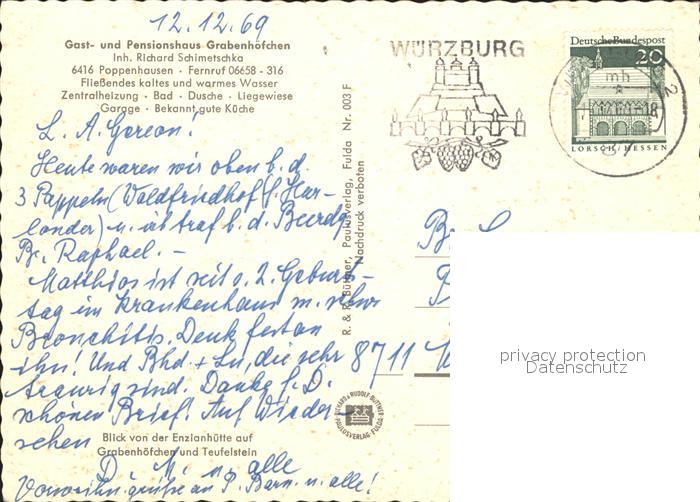 12.12.69
Gast- und Pensionshaus Grabenhöfchen
Inh. Richard Schimetschka
6416 Poppenhausen · Fernruf 06658 - 316
Fließendes kaltes und warmes Wasser
Zentralheizung · Bad · Dusche · Liegewiese
Garage · Bekannt gute Küche
L. A. Gereon!
Heute waren wir oben b. d.
3 Pappeln (Waldfriedhof f. Har-
lander) u. ich traf b. d. Beerdg.
Br. Raphael. –
Matthias ist seit s. 2. Geburts-
tag im Krankenhaus m. schw.
Bronchitis. Denk fest an
ihn! Und Bhd. + Lu, die sehr
traurig sind. Danke f. D.
schönen Brief! Auf Wieder-
sehen
Blick von der Enzianhütte auf
Grabenhöfchen und Teufelstein
D. M. u. alle
Vorweihn.grüße an P. Bern. u. alle!
R. & R. Büttner, Paulusverlag, Fulda Nr. 003 F
Nachdruck verboten
RICHARD & RUDOLF BÜTTNER
PAULUSVERLAG FULDA
WÜRZBURG
Deutsche Bundespost
20
mh
-18
LORSCH/HESSEN
8711
privacy protection
Datenschutz